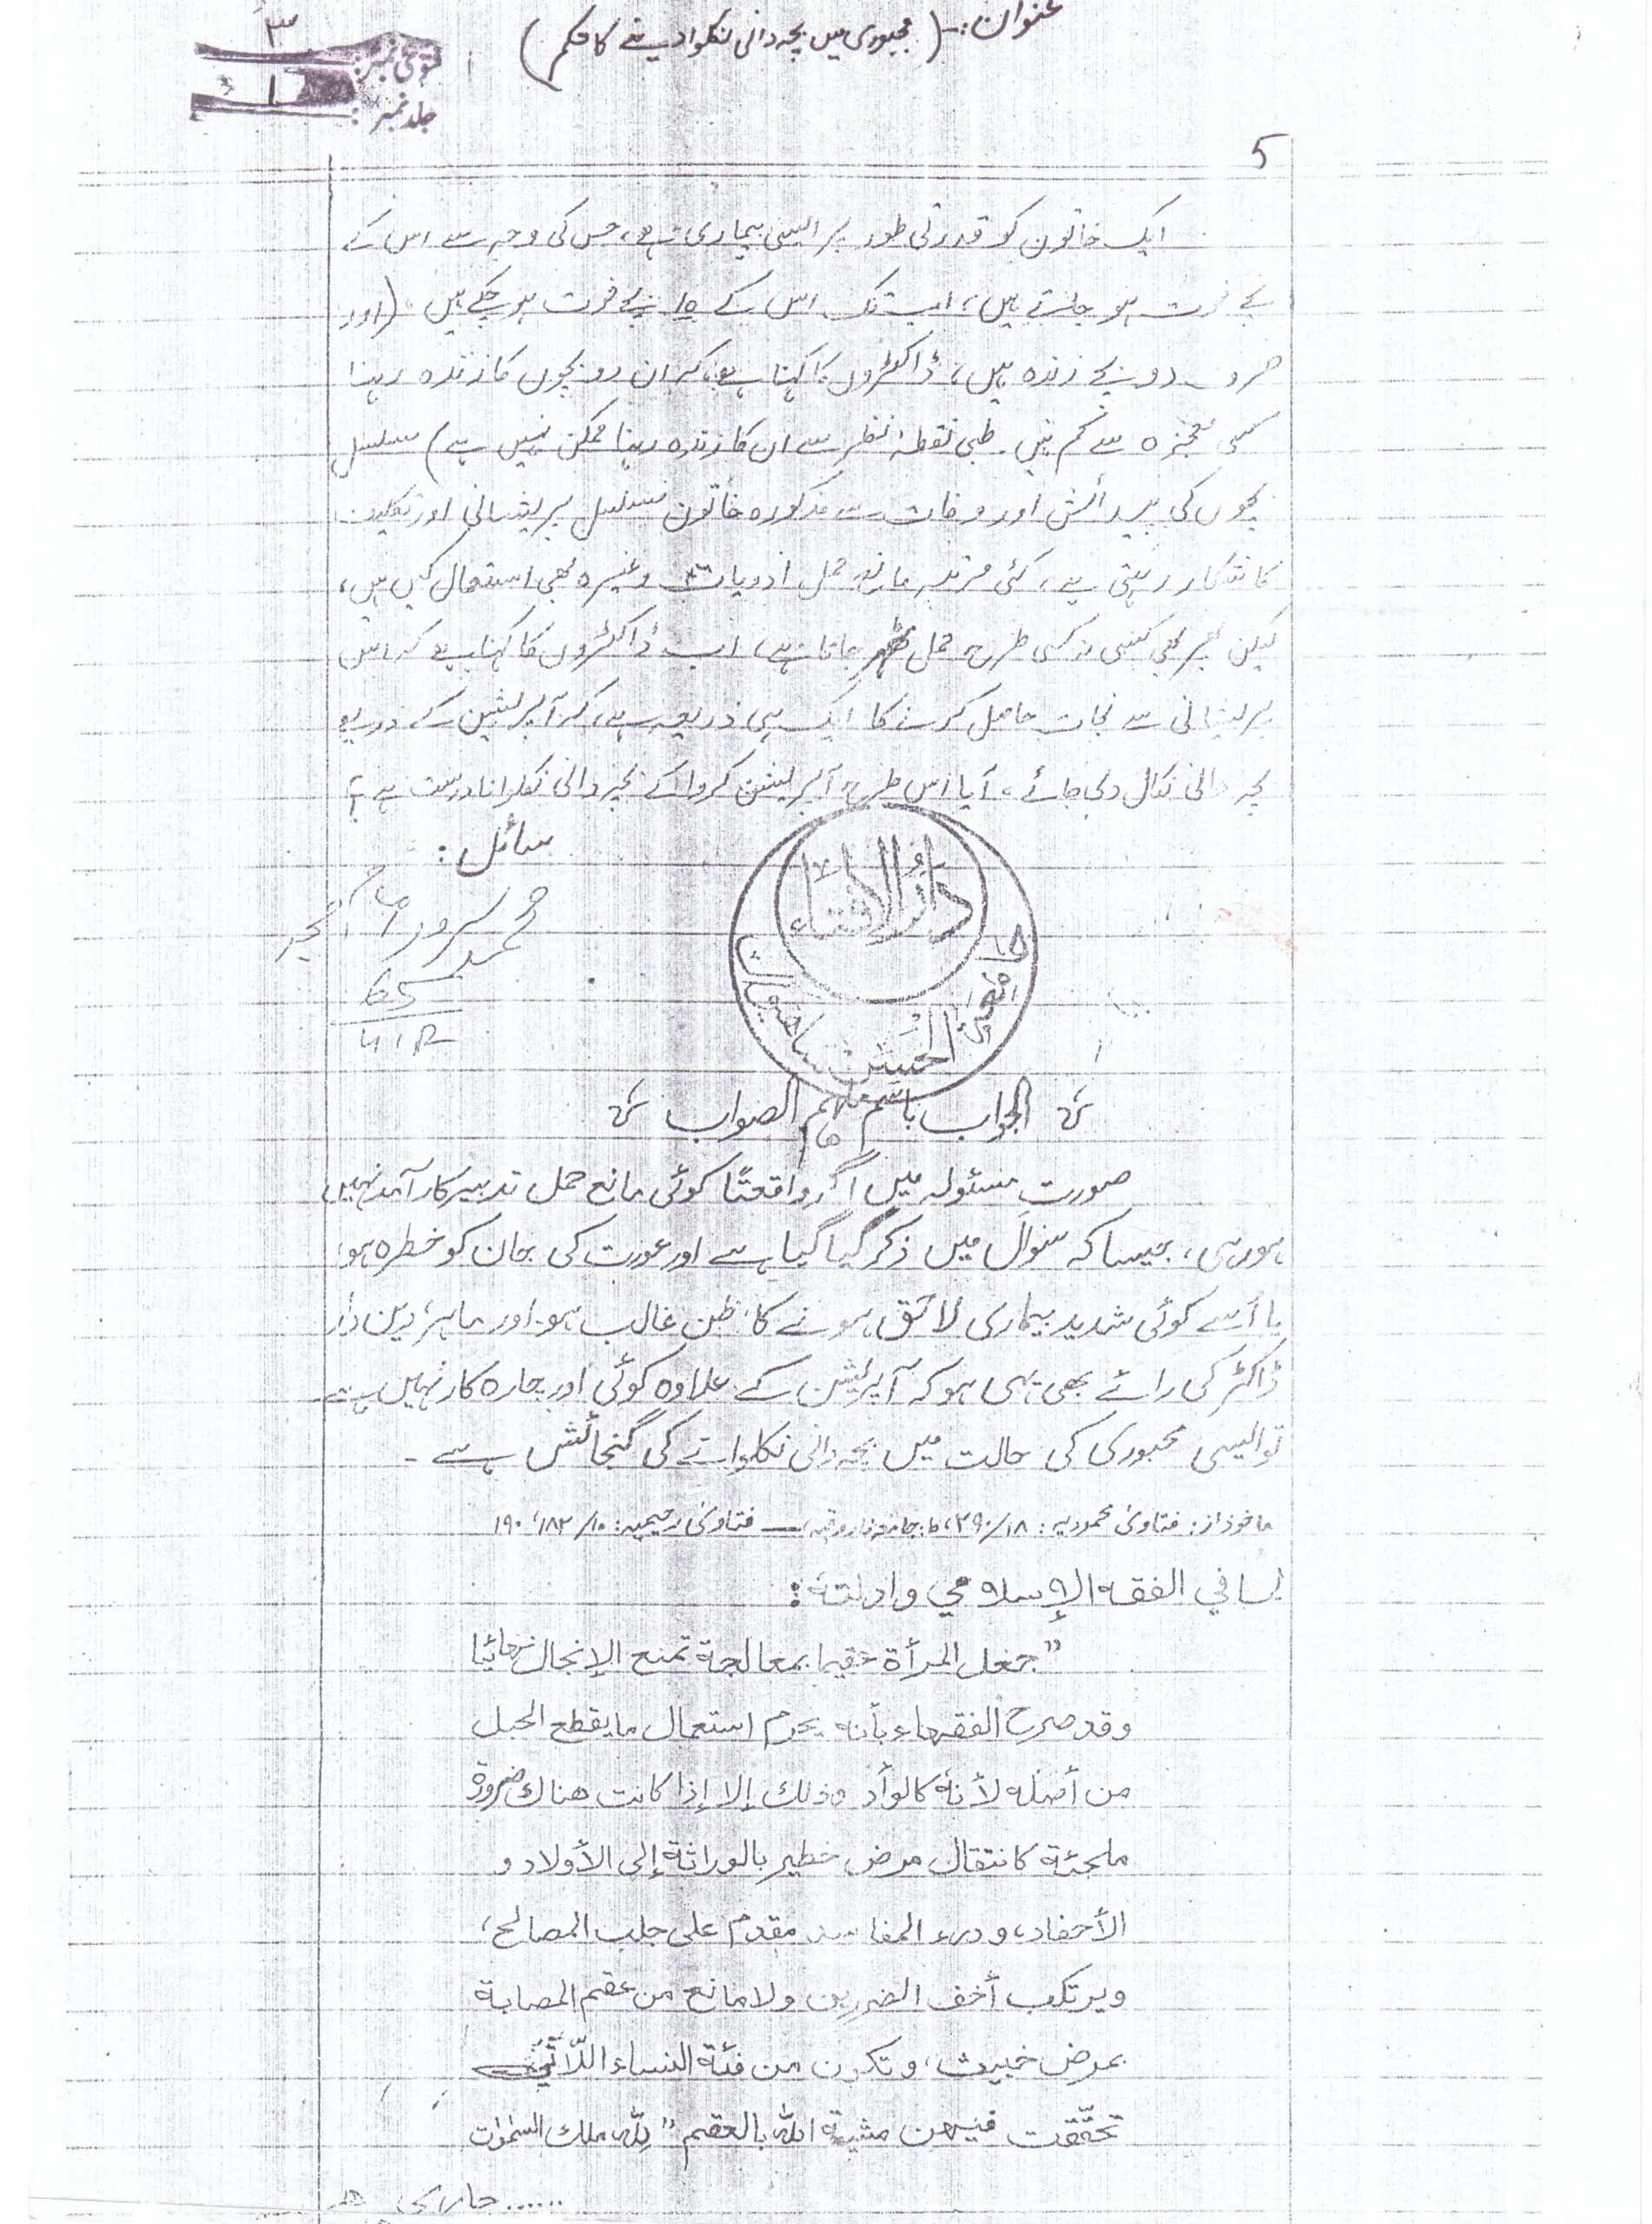 عنوان:- (مجبوری میں بچہ دانی نکلوا دینے کا حکم)
فتویٰ نمبر: ۳
جلد نمبر: ۱
5
ایک خاتون کو قدرتی طور پر ایسی بیماری ہے، جس کی وجہ سے اس کے
بچے فوت ہو جاتے ہیں، اب تک اس کے 10 بچے فوت ہو چکے ہیں (اور
صرف دو بچے زندہ ہیں، ڈاکٹروں کا کہنا ہے، کہ ان دو بچوں کا زندہ رہنا
کسی معجزہ سے کم نہیں۔ طبی نقطۂ نظر سے ان کا زندہ رہنا ممکن نہیں ہے) مسلسل
بچوں کی پیدائش اور وفات سے مذکورہ خاتون مسلسل پریشانی اور تکلیف
کا شکار رہتی ہے، کئی مرتبہ مانع حمل ادویات وغیرہ بھی استعمال کیں ہیں،
لیکن پھر بھی کسی نہ کسی طرح حمل ٹھہر جاتا ہے، اب ڈاکٹروں کا کہنا ہے کہ اس
پریشانی سے نجات حاصل کرنے کا ایک ہی ذریعہ ہے، کہ آپریشن کے ذریعے
بچہ دانی نکال دی جائے۔ آیا اس طرح آپریشن کروا کے بچہ دانی نکلوانا درست ہے؟
سائل:
محمد سرور
دار الافتاء
الجواب باسم ملہم الصواب
صورتِ مسئولہ میں اگر واقعتًا کوئی مانع حمل تدبیر کارآمد نہیں
ہورہی، جیسا کہ سوال میں ذکر کیا گیا ہے اور عورت کی جان کو خطرہ ہو،
یا اُسے کوئی شدید بیماری لاحق ہونے کا ظن غالب ہو اور ماہر، دین دار
ڈاکٹر کی رائے بھی یہی ہو کہ آپریشن کے علاوہ کوئی اور چارہ کار نہیں ہے
تو ایسی مجبوری کی حالت میں بچہ دانی نکلوانے کی گنجائش ہے۔
ماخوذ از: فتاویٰ محمودیہ: ۲۹۰/۱۸، ط: جامعہ فاروقیہ، — فتاویٰ رحیمیہ: ۱۰/ ۱۸۲، ۱۹۰
لما في الفقه الإسلامي وادلته:
"جعل المرأة عقيما بمعالجة تمنع الإنجال نهائيا
وقد صرح الفقهاء بأنه يحرم استعمال ما يقطع الحبل
من أصله لأنه كالوأد وذلك إلا إذا كانت هناك ضرورة
ملجئة كانتقال مرض خطير بالوراثة إلى الأولاد و
الأحفاد، ودرء المفاسد مقدم على جلب المصالح،
ويرتكب أخف الضررين ولا مانع من عقم المصابة
بمرض خبيث، وتكون من فئة النساء اللّاتي
تحقّقت فيهن مشيئة الله بالعقم "لِلّٰه ملك السّمٰوٰت
......جاری ہے